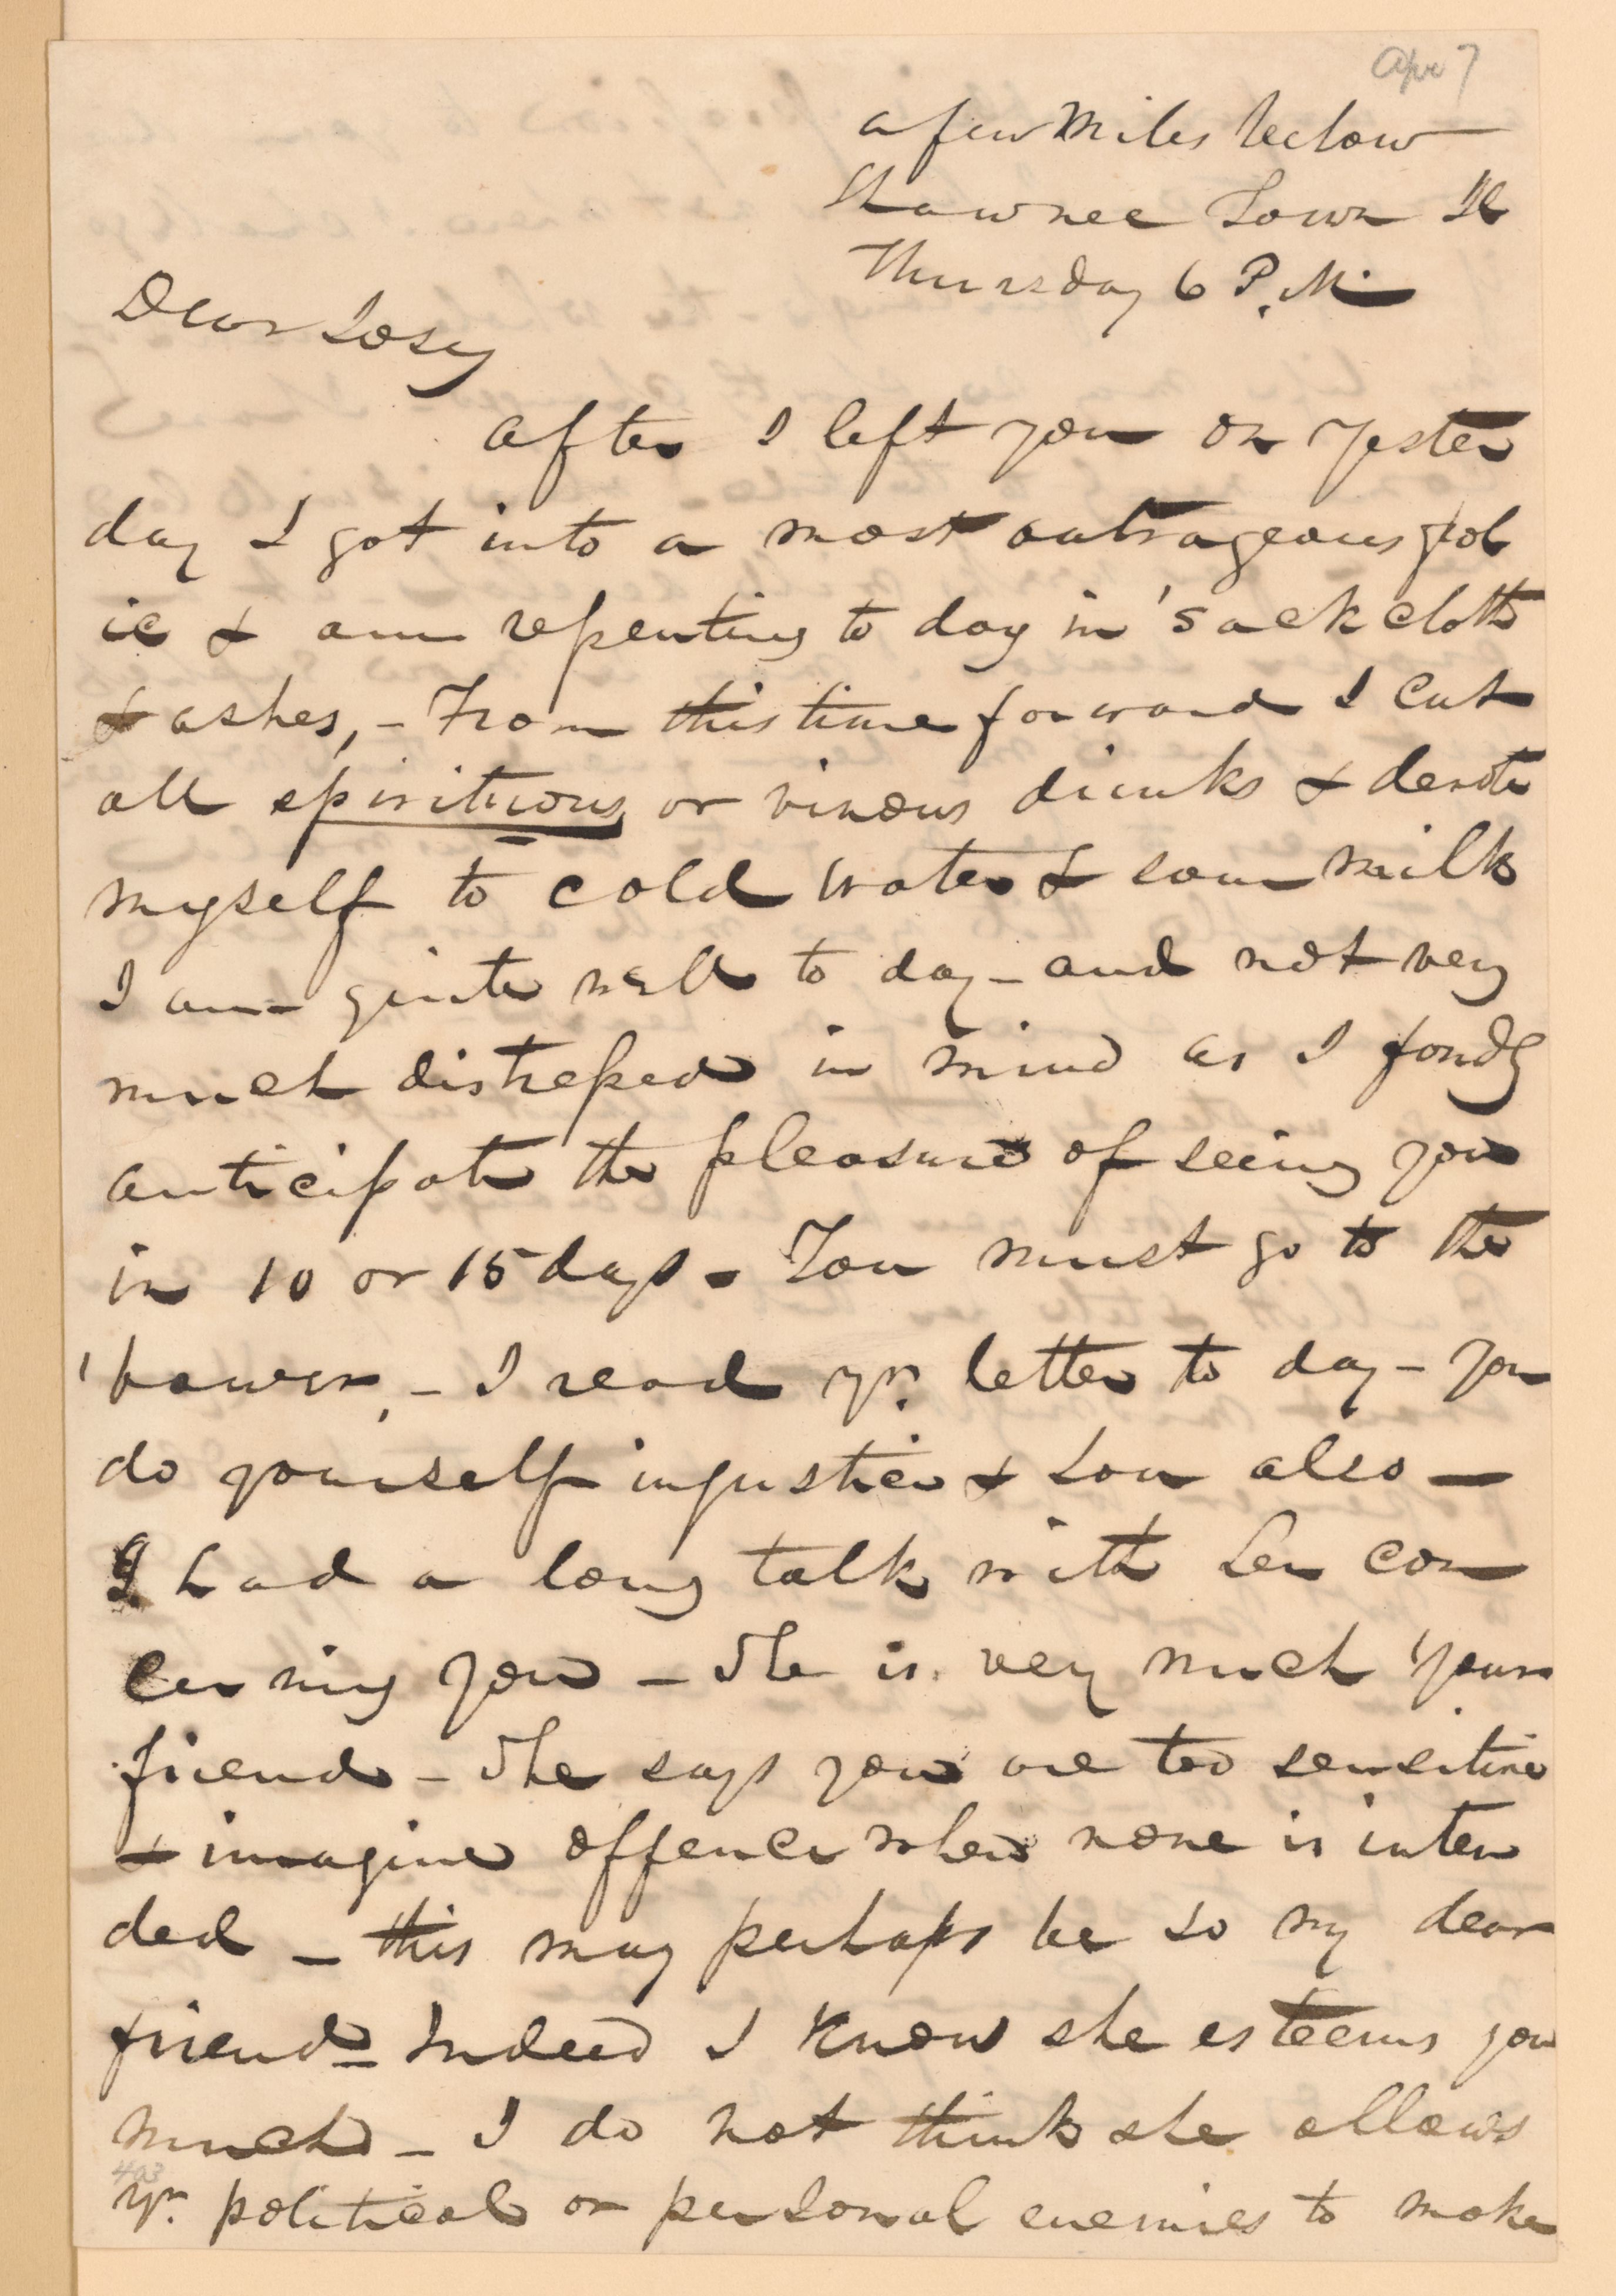 Apr 7
a few Miles below
Shawnee Town Ill
Thursday 6 P.M.
Dear Losey
After I left you on yester
day I got into a most outrageous frol
ic & am repenting to day in 'sackcloth
& ashes, - From this time forward I cut
all spirituous or vinous drinks & devote
myself to cold water & sour milk
I am quite well to day - and not very
much distressed in mind as I fondly
anticipate the pleasure of seeing you
in 10 or 15 days - You must go to the
'bower, - I read yr. letter to day - you
do yourself injustice & Lou also -
I had a long talk with her con
cerning you - She is very much your
friend - She says you are too sensitive
& imagine offence when none is inten
ded - this may perhaps be so my dear
friend - Indeed I know she esteems you
much - I do not think she allows
yr. political or personal enemies to make
403